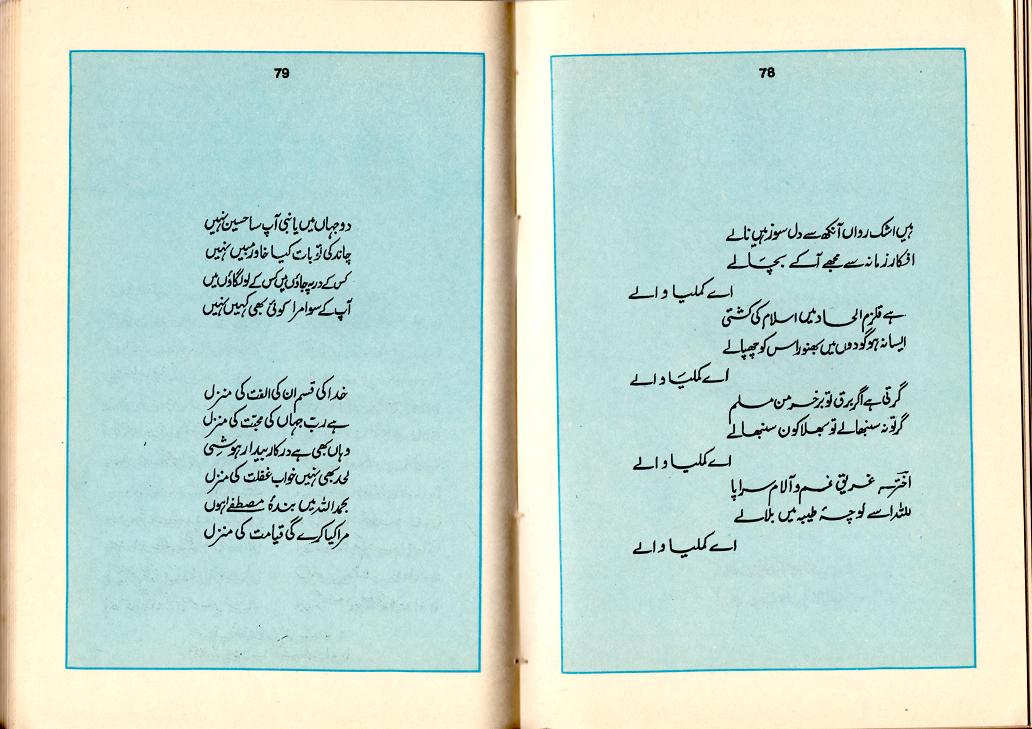 78
ہیں اشک رواں آنکھ سے دل سوز ہیں نالے
افکار زمانہ سے مجھے آکے بچالے
اے کملیا والے
ہے قلزم الحاد میں اسلام کی کشتی
ایسا نہ ہو گودوں میں بھنور اس کو چھپالے
اے کملیا والے
گرتی ہے اگر برق تو بر خرمن مسلم
گر تو نہ سنبھالے تو بھلا کون سنبھالے
اے کملیا والے
اختر ہے غریق غم و آلام سراپا
للہ اسے کوچۂ طیبہ میں بلالے
اے کملیا والے
79
دو جہاں میں یا نبی آپ سا حسین نہیں
چاند کی تو بات کیا خاور مبیں نہیں
کس کے در پہ جاؤں میں کس کے لو لگاؤں میں
آپ کے سوا مرا کوئی بھی کہیں نہیں
خدا کی قسم ان کی الفت کی منزل
ہے رب جہاں کی محبت کی منزل
وہاں بھی ہے درکار بیدار ہوشی
لحد بھی نہیں خواب غفلت کی منزل
بحمد اللہ میں بندۂ مصطفےٰ ہوں
مرا کیا کرے گی قیامت کی منزل